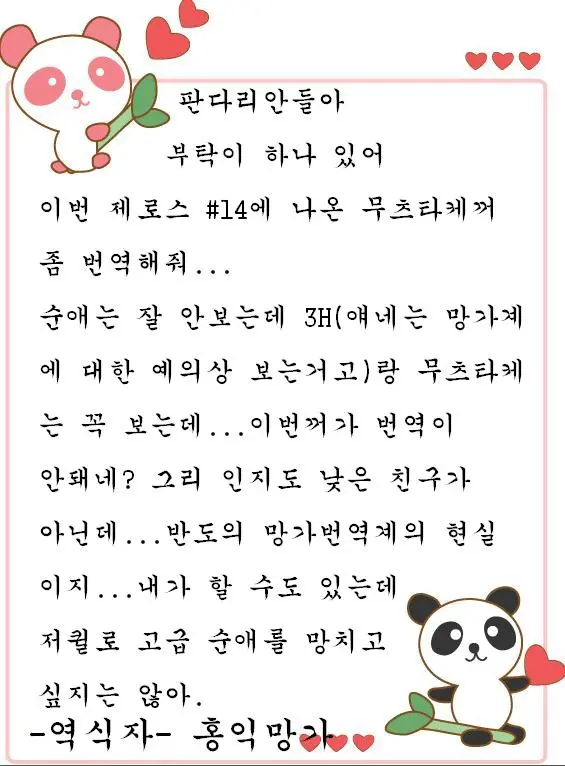 판다리안들아
부탁이 하나 있어
이번 제로스 #14에 나온 무츠타케꺼
좀 번역해줘...
순애는 잘 안보는데 3H(얘네는 망가계
에 대한 예의상 보는거고)랑 무츠타케
는 꼭 보는데...이번꺼가 번역이
안돼네? 그리 인지도 낮은 친구가
아닌데...반도의 망가번역계의 현실
이지...내가 할 수도 있는데
저퀄로 고급 순애를 망치고
싶지는 않아.
-역식자- 홍익망가